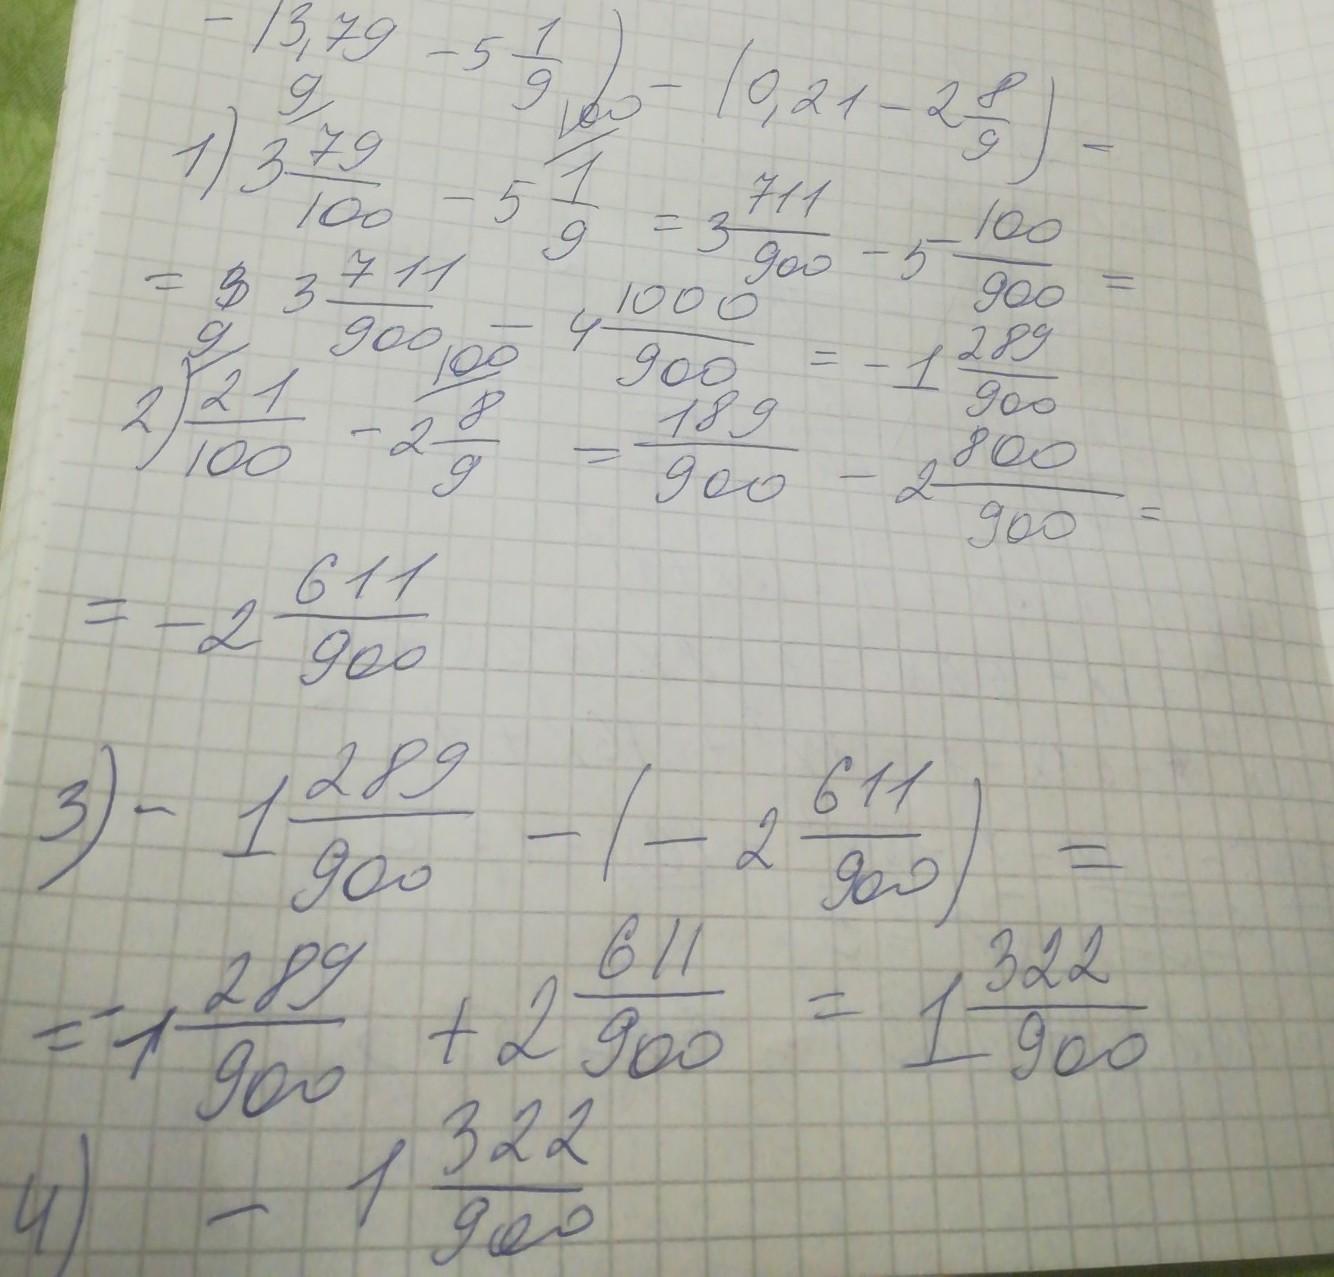 - (3,79 - 5 1/9) - (0,21 - 2 8/9) =
1) 3 79/100 - 5 1/9 = 3 711/900 - 5 100/900 =
= 3 711/900 - 4 1000/900 = -1 289/900
2) 21/100 - 2 8/9 = 189/900 - 2 800/900 =
= -2 611/900
3) - 1 289/900 - (- 2 611/900) =
= -1 289/900 + 2 611/900 = 1 322/900
4) - 1 322/900